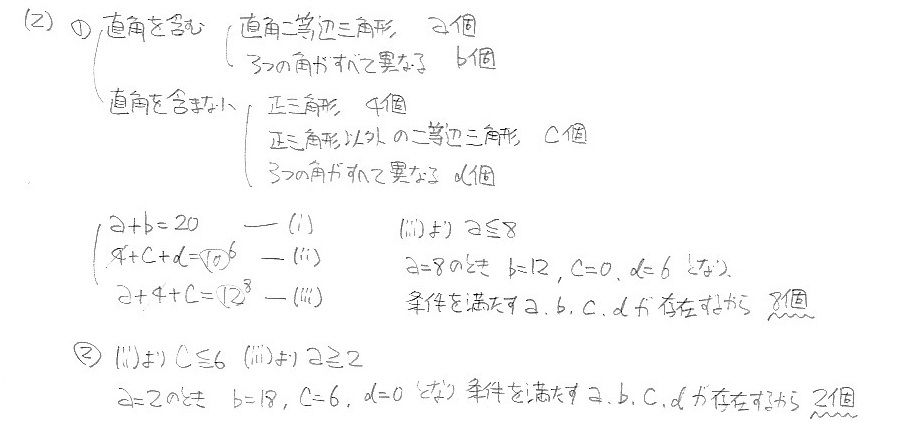 (2) ① 直角を含む 直角二等辺三角形 a個
3つの角がすべて異なる b個
直角を含まない 正三角形 4個
正三角形以外の二等辺三角形 c個
3つの角がすべて異なる d個
a+b=20 ― (i)
4+c+d=10 6 ― (ii)
a+4+c=12 8 ― (iii)
(iii)より a≦8
a=8のとき b=12, c=0, d=6 となり、
条件を満たす a.b.c.d が存在するから 8個
② (ii)より c≦6 (iii)より a≧2
a=2のとき b=18, c=6, d=0 となり 条件を満たす a.b.c.d が存在するから 2個